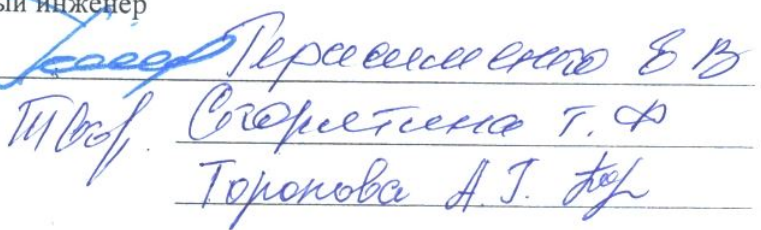 ый инженер
Герасименко Е В
Скорятина Т. Ф
Торопова А. Г.